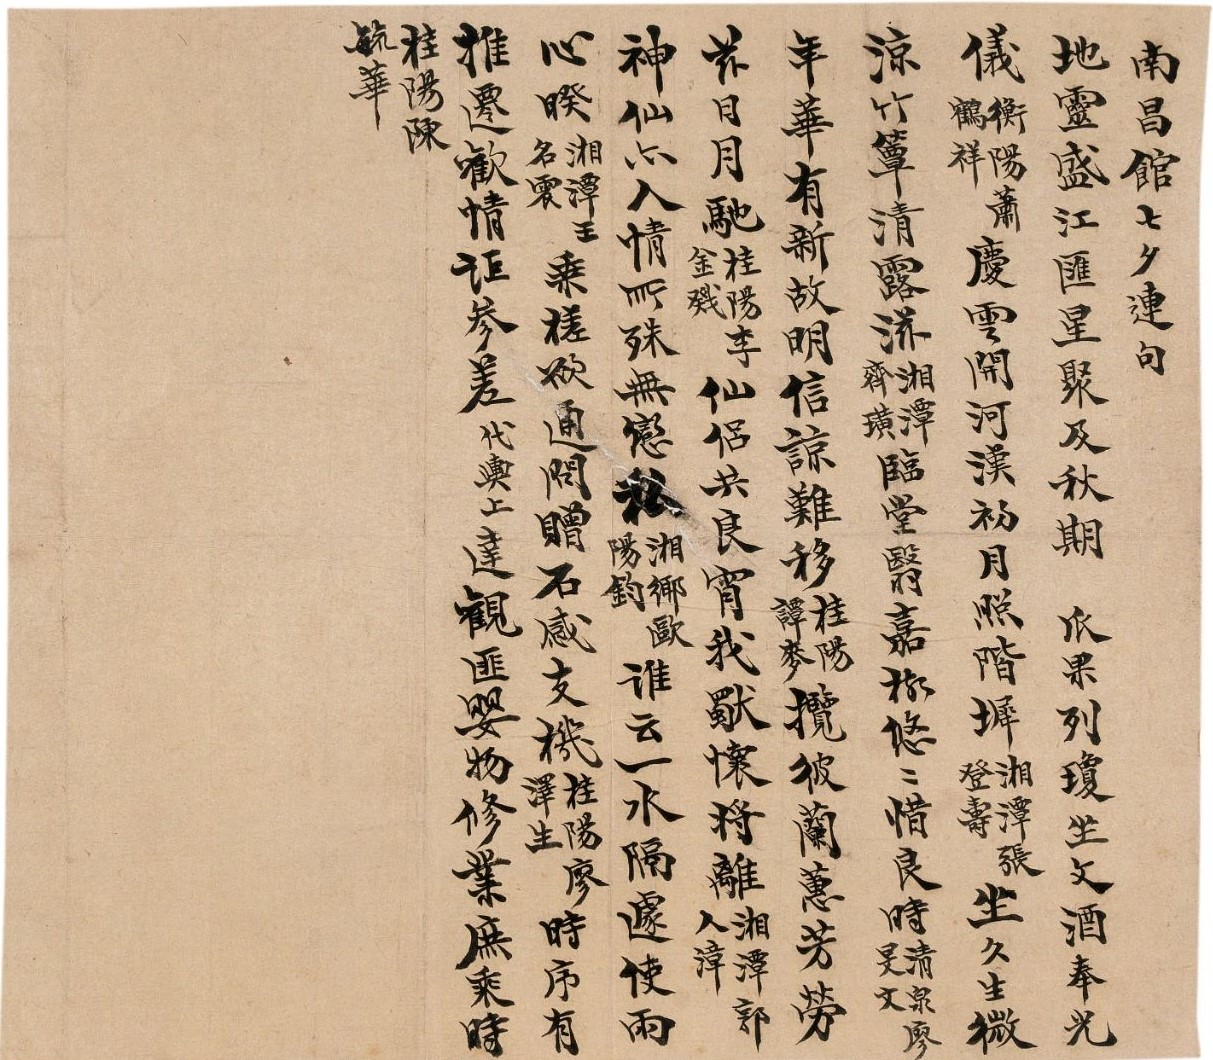 南昌館七夕連句
地靈盛江匯星聚及秋期 瓜果列瓊坐文酒奉光
儀衡陽蕭鶴祥慶雲開河漢初月照階墀湘潭張登壽坐久生微
涼竹簟清露洓湘潭齊璜臨堂翳嘉樹悠〻惜良時清泉廖昱文
年華有新故明信諒難移桂陽譚麥攬彼蘭蕙芳勞
茲日月馳桂陽李金戣仙侶共良宵我獸懷將離湘潭郭人漳
神仙亦人情所殊無戀私湘鄉歐陽鈞誰云一水隔遽使兩
心暌湘潭王名震乘槎欲通問贈石感支機桂陽廖澤生時序有
推遷歡情詎參差代輿上達觀匪嬰物修業庶乘時
桂陽陳
毓華